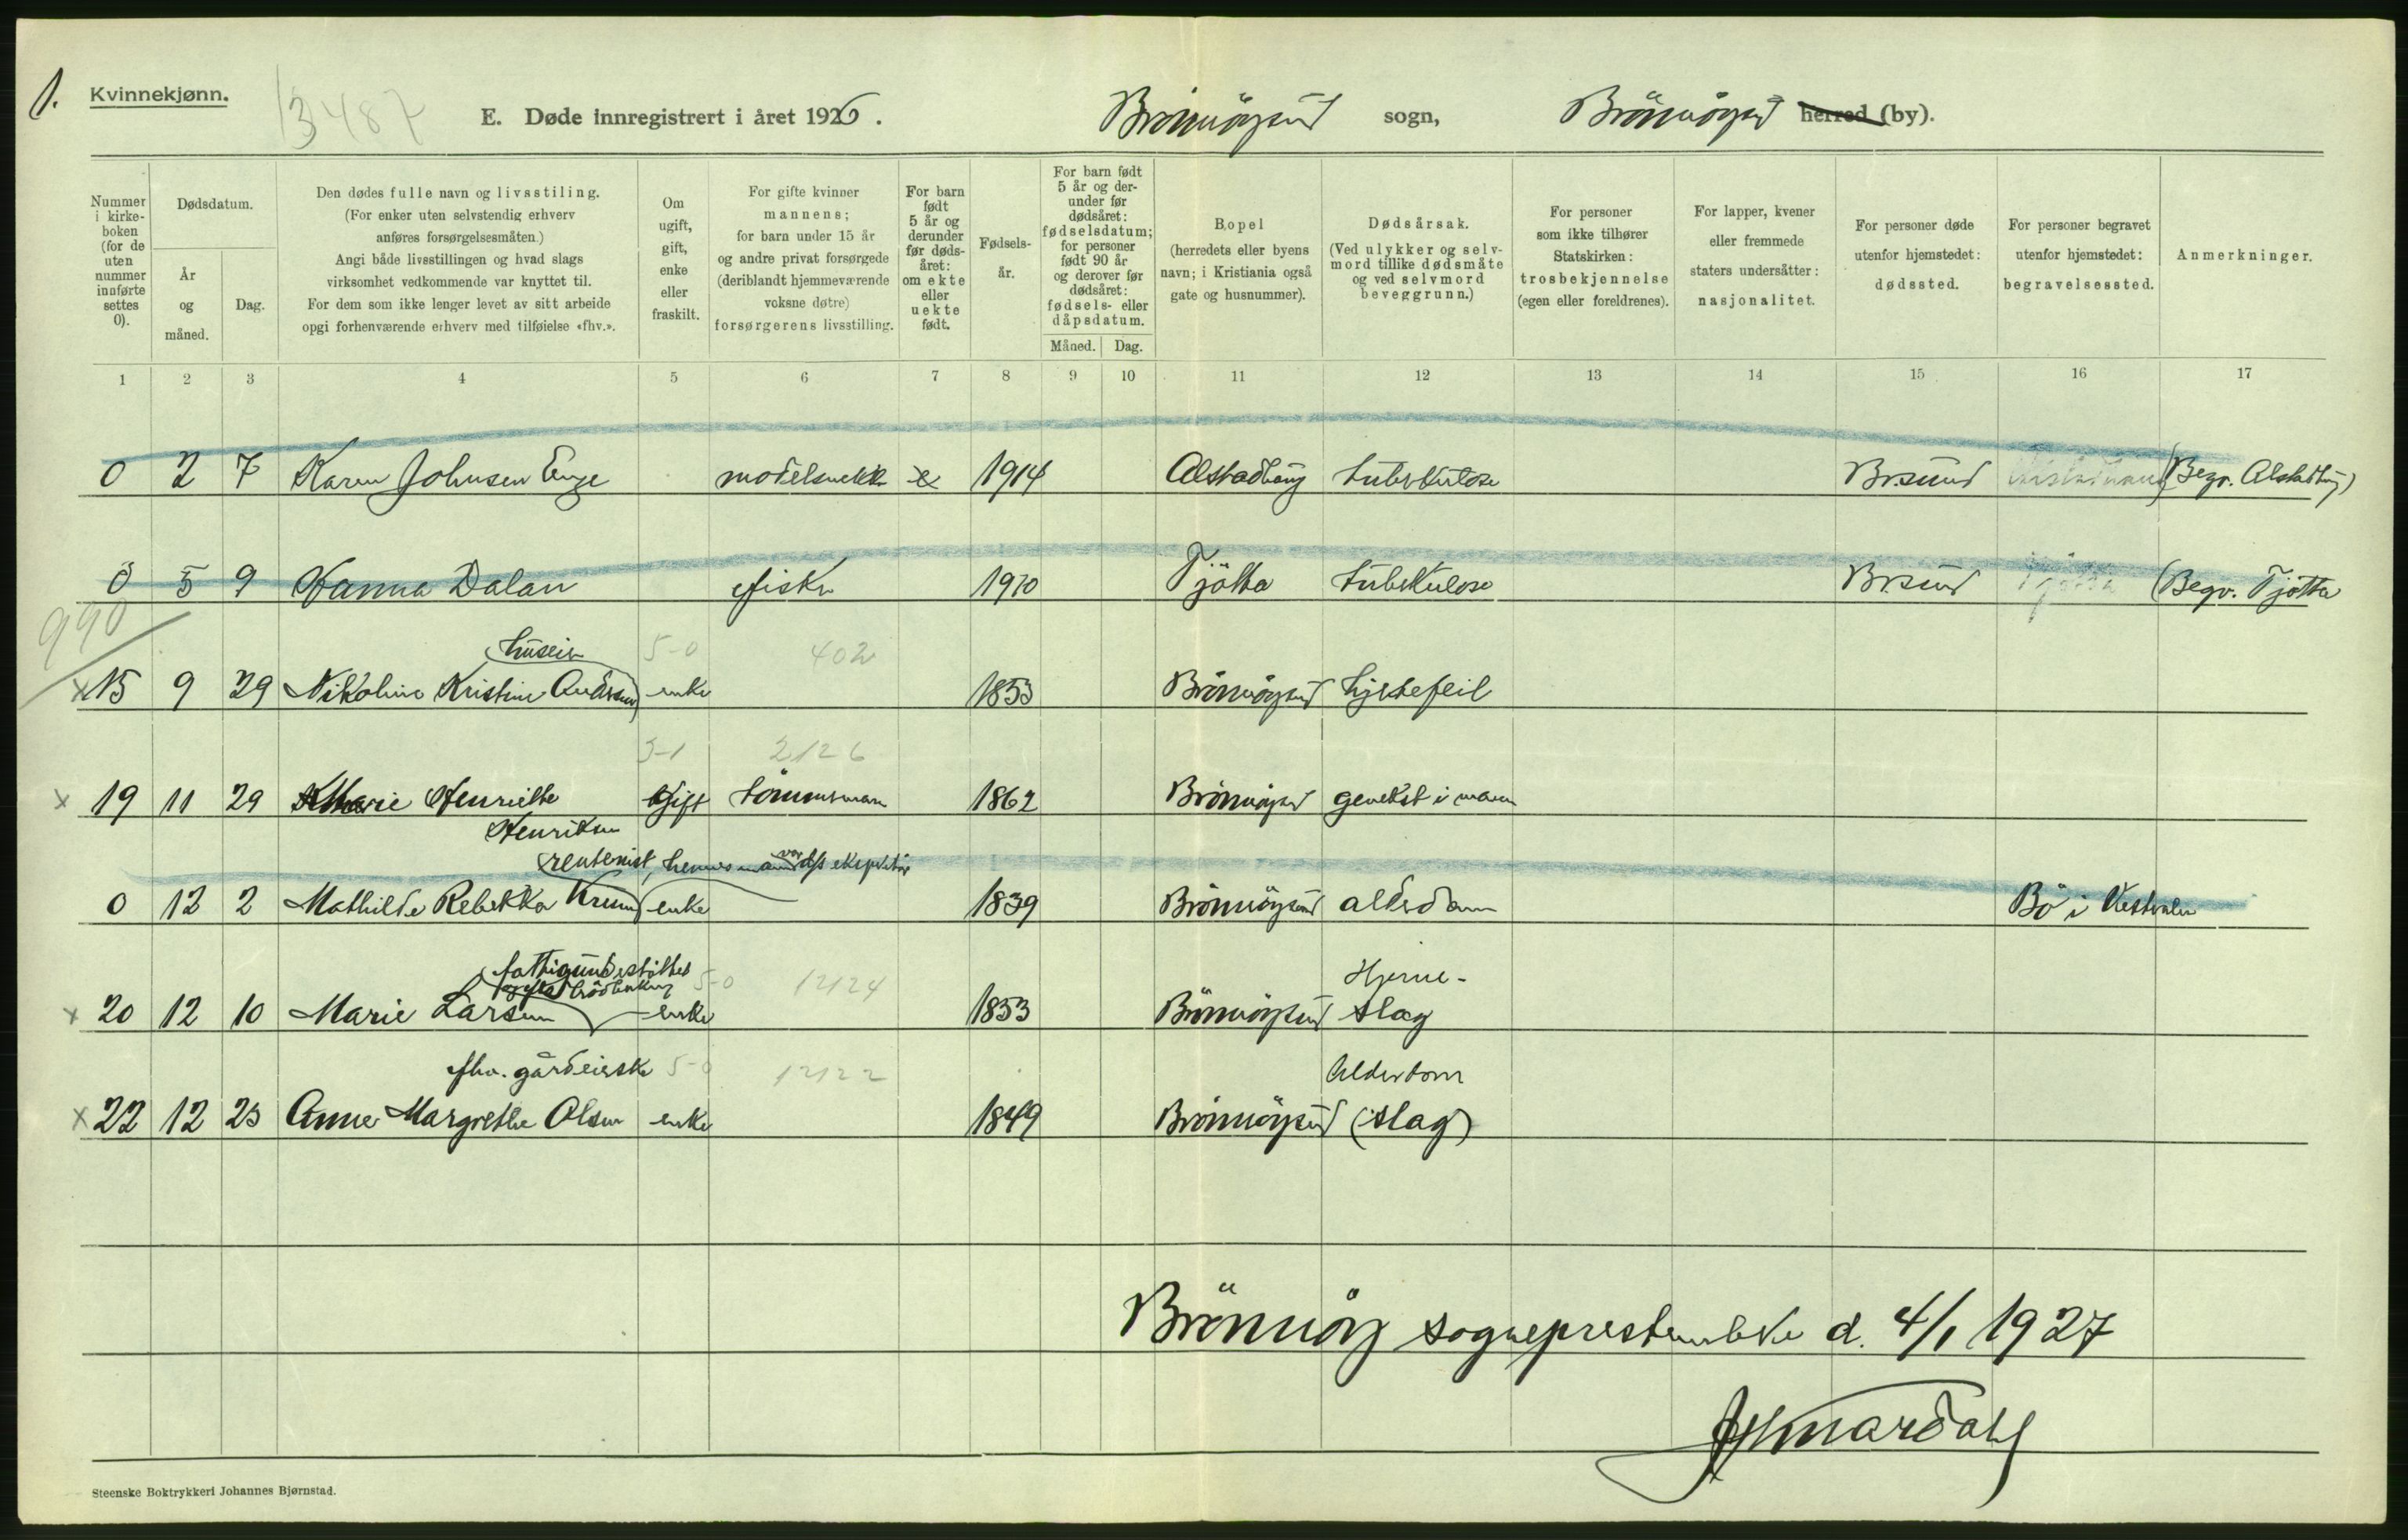 1.
Kvinnekjønn.
13487
E. Døde innregistrert i året 1926.
Brönnöysund sogn, Brönnöysund herred (by).
Nummer i kirke-boken (for de uten nummer innførte settes 0).
Dødsdatum.
År og måned.
Dag.
Den dødes fulle navn og livsstiling.
(For enker uten selvstendig erhverv
anføres forsørgelsesmåten.)
Angi både livsstillingen og hvad slags
virksomhet vedkommende var knyttet til.
For dem som ikke lenger levet av sitt arbeide
opgi forhenværende erhverv med tilføielse «fhv.».
Om ugift, gift, enke eller fraskilt.
For gifte kvinner
mannens;
for barn under 15 år
og andre privat forsørgede
(deriblandt hjemmeværende
voksne døtre)
forsørgerens livsstilling.
For barn født 5 år og derunder før døds-året: om ekte eller uekte født.
Fødsels-år.
For barn født 5 år og der-under før dødsåret: fødselsdatum; for personer født 90 år og derover før dødsåret: fødsels- eller dåpsdatum.
Måned. Dag.
Bopel
(herredets eller byens
navn; i Kristiania også
gate og husnummer).
Dødsårsak.
(Ved ulykker og selv-
mord tillike dødsmåte
og ved selvmord
beveggrunn.)
For personer
som ikke tilhører
Statskirken:
trosbekjennelse
(egen eller foreldrenes).
For lapper, kvener
eller fremmede
staters undersåtter:
nasjonalitet.
For personer døde
utenfor hjemstedet:
dødssted.
For personer begravet
utenfor hjemstedet:
begravelsessted.
Anmerkninger.
1 2 3 4 5 6 7 8 9 10 11 12 13 14 15 16 17
0 2 7 Karen Johnsen Enge modelsnekk e 1914 Alstadhaug tuberkulose Br.sund Alstadhaug (Begr. Alstadhaug)
0 5 9 Hanna Dalan fisker 1910 Tjötta tuberkulose Br.sund Tjötta (Begr. Tjötta
990
huseier 5-0 402
x 15 9 29 Nikoline Kristine Andersen enke 1853 Brönnöysund hjertefeil
3-1 2126
x 19 11 29 Marie Henriette gift tömmermann 1862 Brönnöysund gevekst i maven
Henriksen
rentenist, hennes mann var d/s ekspeditör
0 12 2 Mathilde Rebekka enke 1839 Brönnöysund alderdom Bö i Vesterålen
fattigunderstöttet 5-0 12124 Hjerne-
x 20 12 10 Marie Larsen enke 1853 Brönnöysund slag
fhv. gårdeierske 5-0 12122 Alderdom
x 22 12 23 Anne Margrethe Olsen enke 1849 Brönnöysund (slag)
Brönnöy sogneprestembede d. 4/1 1927
Steenske Boktrykkeri Johannes Bjørnstad.